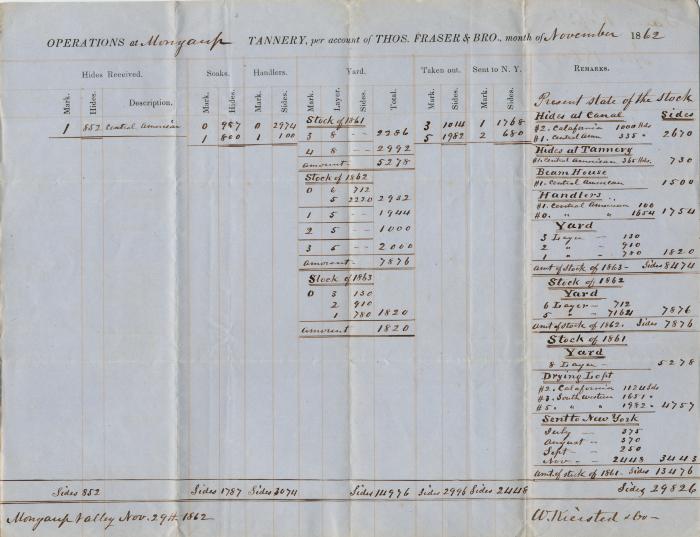 OPERATIONS at Mongaup TANNERY, per account of THOS. FRASER & BRO., month of November 1862
Hides Received. Soaks. Handlers. Yard. Taken out. Sent to N. Y. REMARKS.
Mark. Hides. Description. Mark. Hides. Mark. Sides. Mark. Layer. Sides. Total. Mark. Sides. Mark. Sides.
1 852 Central American
0 987
1 800
0 2974
1 100
Stock of 1861
3 8 -- 2286
4 8 -- 2992
Amount - 5278
Stock of 1862
0 6 712
5 2220 2932
1 5 -- 1944
2 5 -- 1000
3 5 -- 2000
Amount - 7876
Stock of 1863
0 3 130
2 910
1 780 1820
Amount 1820
3 1014
5 1982
1 1768
2 680
Present state of the Stock
Hides at Canal Sides
#2. Calafornia 1000 Hds
#1. Central Amn 335 " 2670
Hides at Tannery
#1. Central American 365 Hds. 730
Beam House
#1. Central American 1500
Handlers
#1. Central American 100
#0. " " 1654 1754
Yard
3 Layer - 130
2 " - 910
1 " - 780 1820
Amt of Stock of 1863 - Sides 8474
Stock of 1862
Yard
6 Layer - 712
5 " - 7164 7876
Amt of Stock of 1862. Sides 7876
Stock of 1861
Yard
8 Layer 5278
Drying Loft
#2. Calafornia 1124 Sds
#3. South western 1651 "
#5. " " 1982 " 4757
Sent to New York
July - 375
August - 370
Sept - 250
Nov - 2448 3443
Amt of Stock of 1861 - Sides 13476
Sides 852 Sides 1787 Sides 3074 Sides 14976 Sides 2996 Sides 2448 Sides 29826
Mongaup Valley Nov. 29th 1862 W. Kiersted & Co -